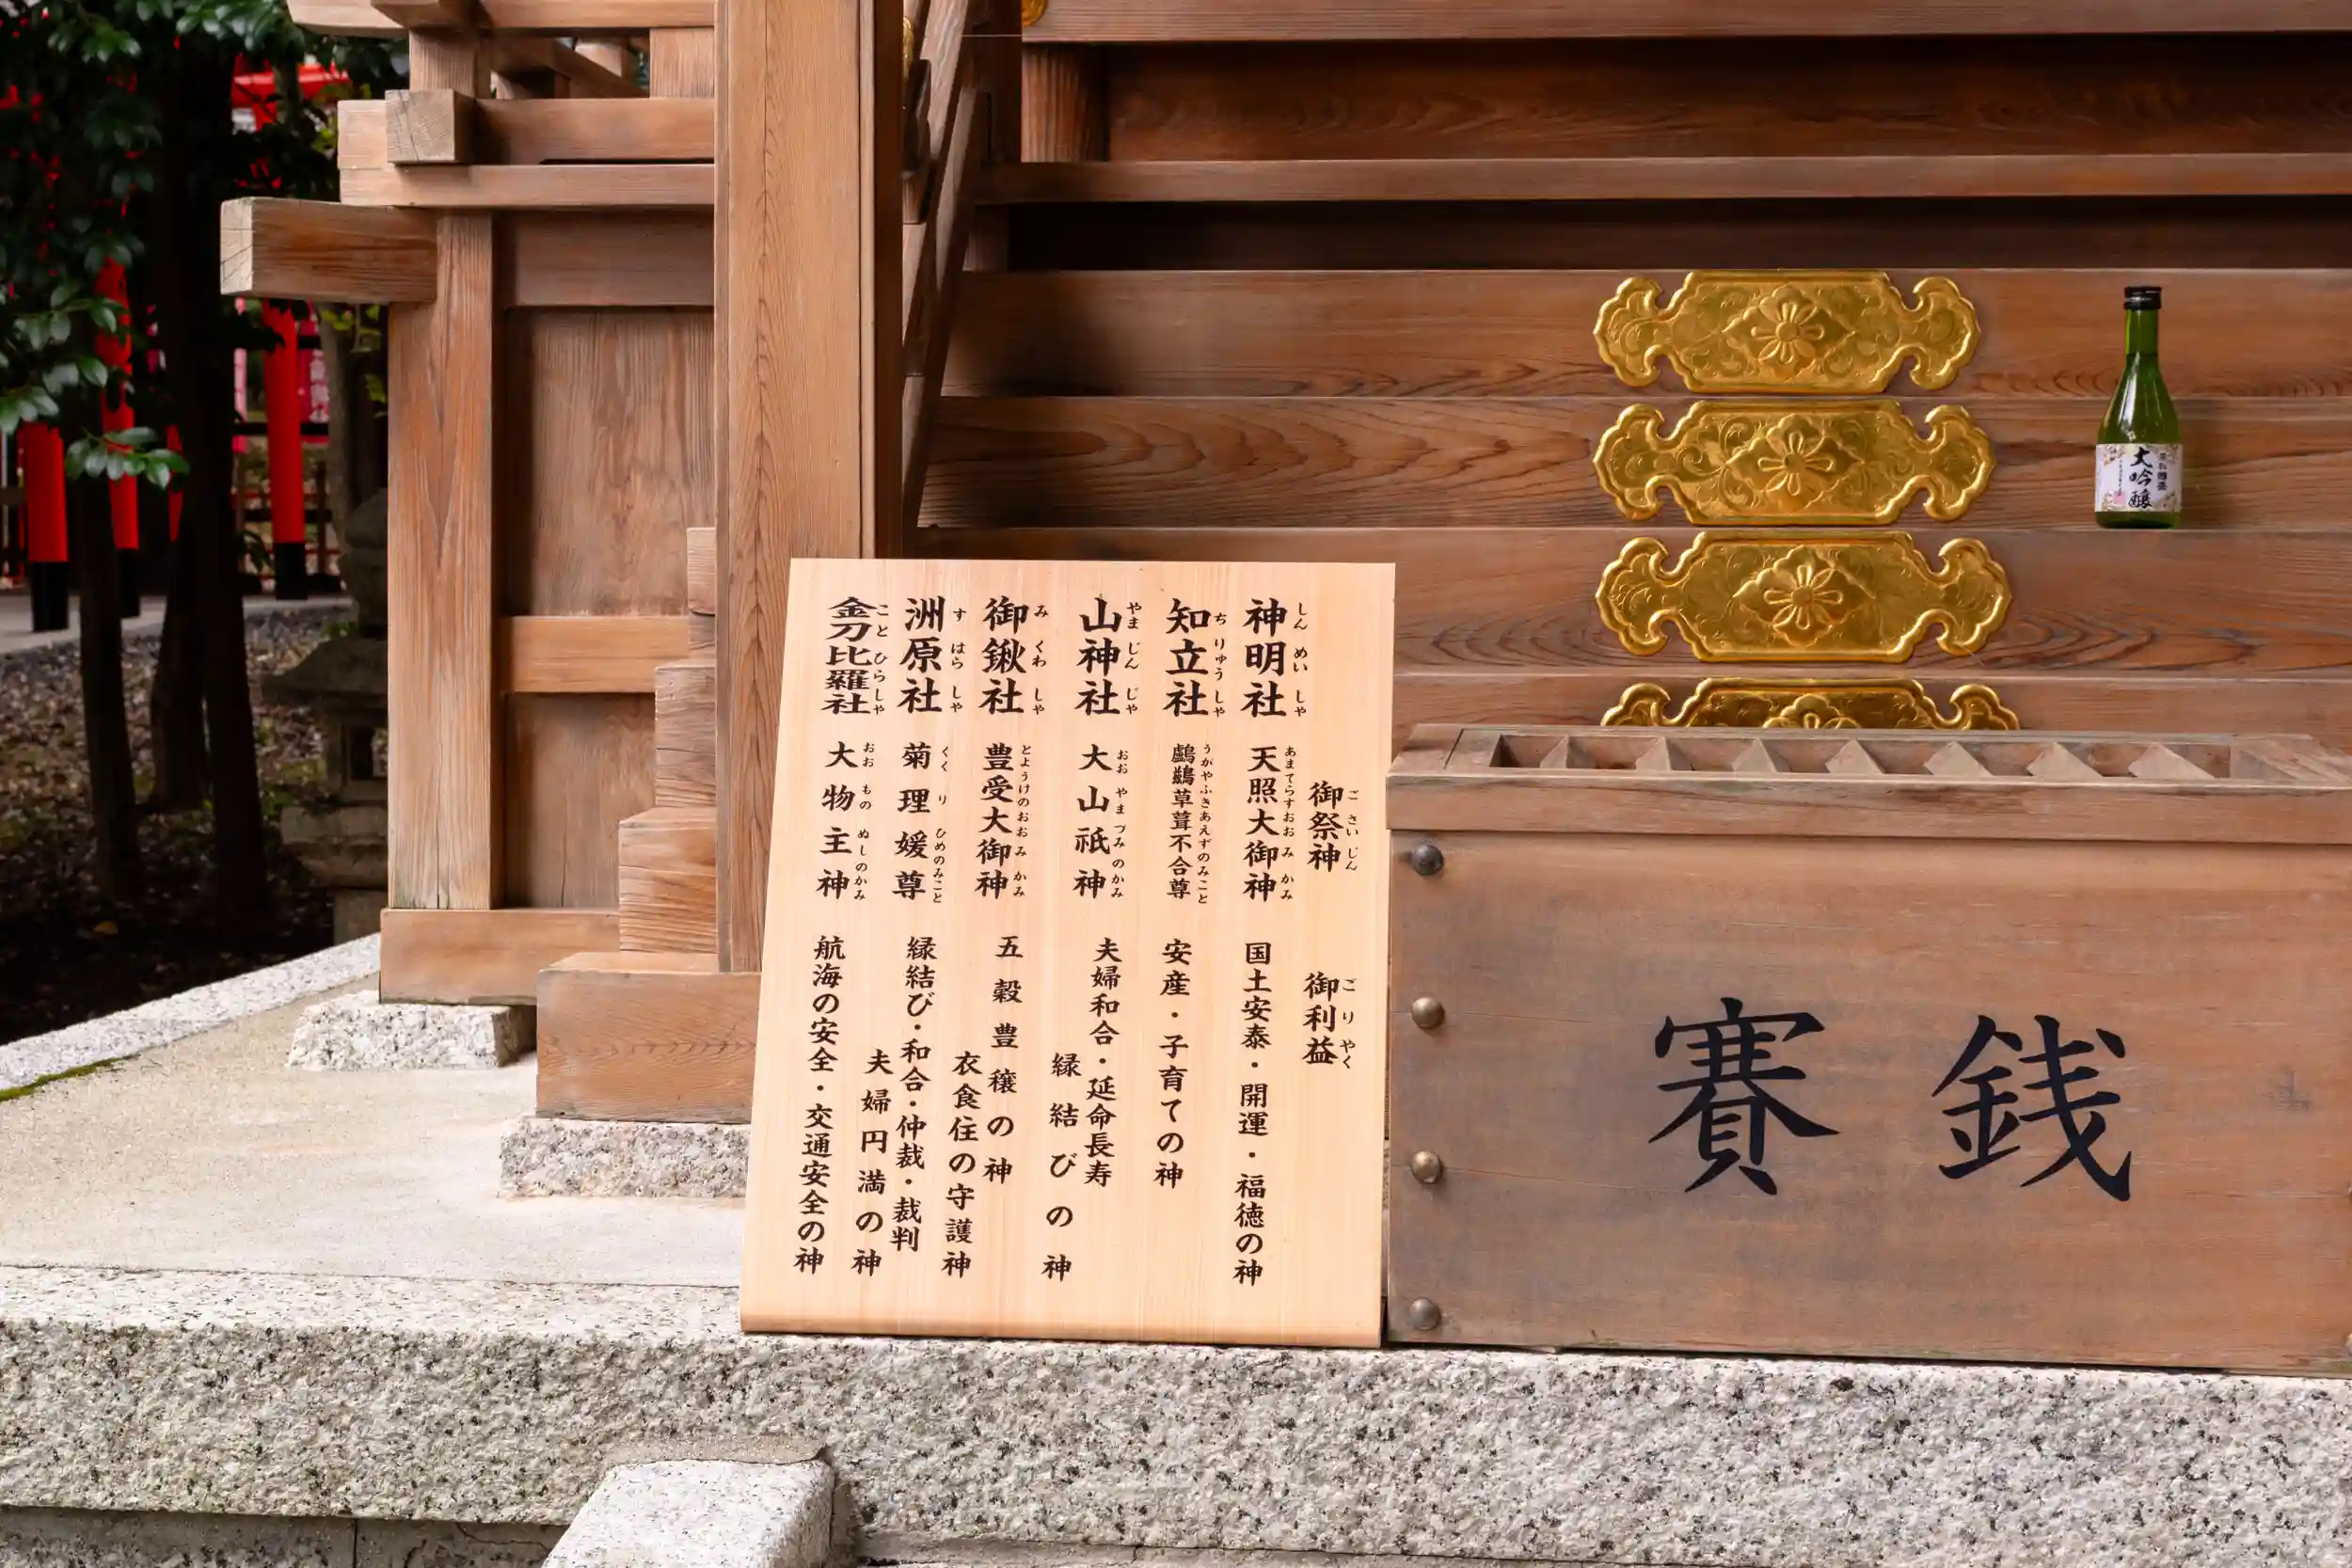 御祭神
ごさいじん
御利益
ごりやく
神明社
しんめいしゃ
天照大御神
あまてらすおおみかみ
国土安泰・開運・福徳の神
知立社
ちりゅうしゃ
鸕鷀草葺不合尊
うがやふきあえずのみこと
安産・子育ての神
山神社
やまじんじゃ
大山祇神
おおやまづみのかみ
夫婦和合・延命長寿
縁結びの神
御鍬社
みくわしゃ
豊受大御神
とようけのおおみかみ
五穀豊穣の神
衣食住の守護神
洲原社
すはらしゃ
菊理媛尊
くくりひめのみこと
縁結び・和合・仲裁・裁判
夫婦円満の神
金刀比羅社
ことひらしゃ
大物主神
おおものぬしのかみ
航海の安全・交通安全の神
賽銭
大吟醸